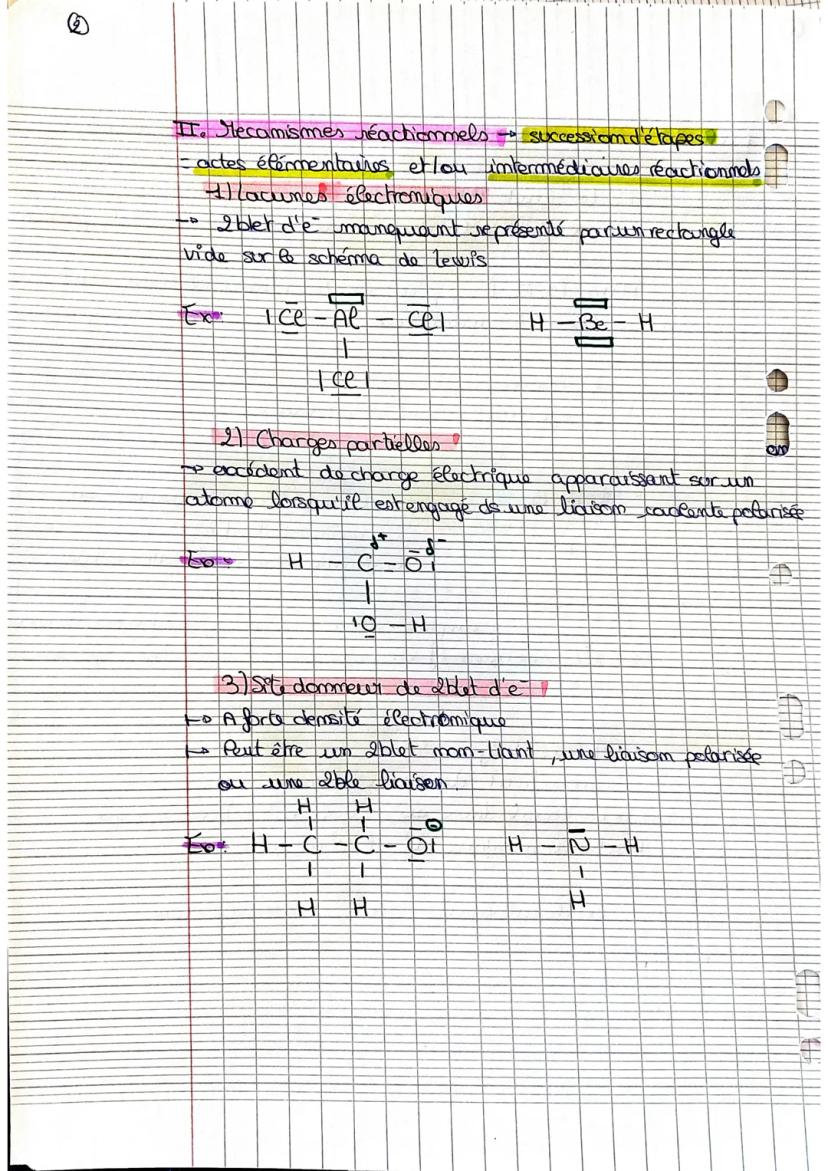 ②
II. Mecanismes réactionnels → succession d'étapes
= actes élémentaires et/ou intermédiaires réactionnels
1) lacunes électroniques
→ 2blet d'e⁻ manquant représenté par un rectangle
vide sur le schéma de lewis
Ex: |Cl - Al - Cl| H - Be - H
|
|Cl|
2) Charges partielles
→ excédent de charge électrique apparaissant sur un
atome lorsqu'il est engagé ds une liaison covalente polarisée
δ+ δ-
Ex: H - C = O|
|
|O - H
3) Site donneur de 2blet d'e⁻
↦ A forte densité électronique
↦ Peut être un 2blet non-liant, une liaison polarisée
ou une 2ble liaison.
H H
| | ⊖
Ex: H - C - C - O| H - N - H
| | |
H H H